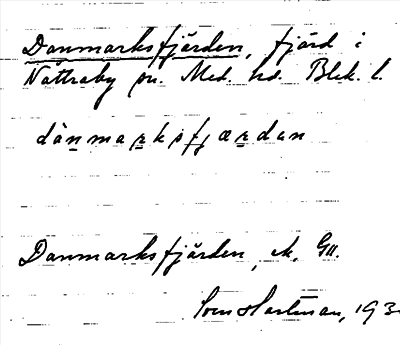 Danmarksfjärden, fjärd i
Nättraby sn. Med. hd. Blek. l.
dànmarksfjærdan
Danmarksfjärden, ek. GII.
Sven Hartman, 193